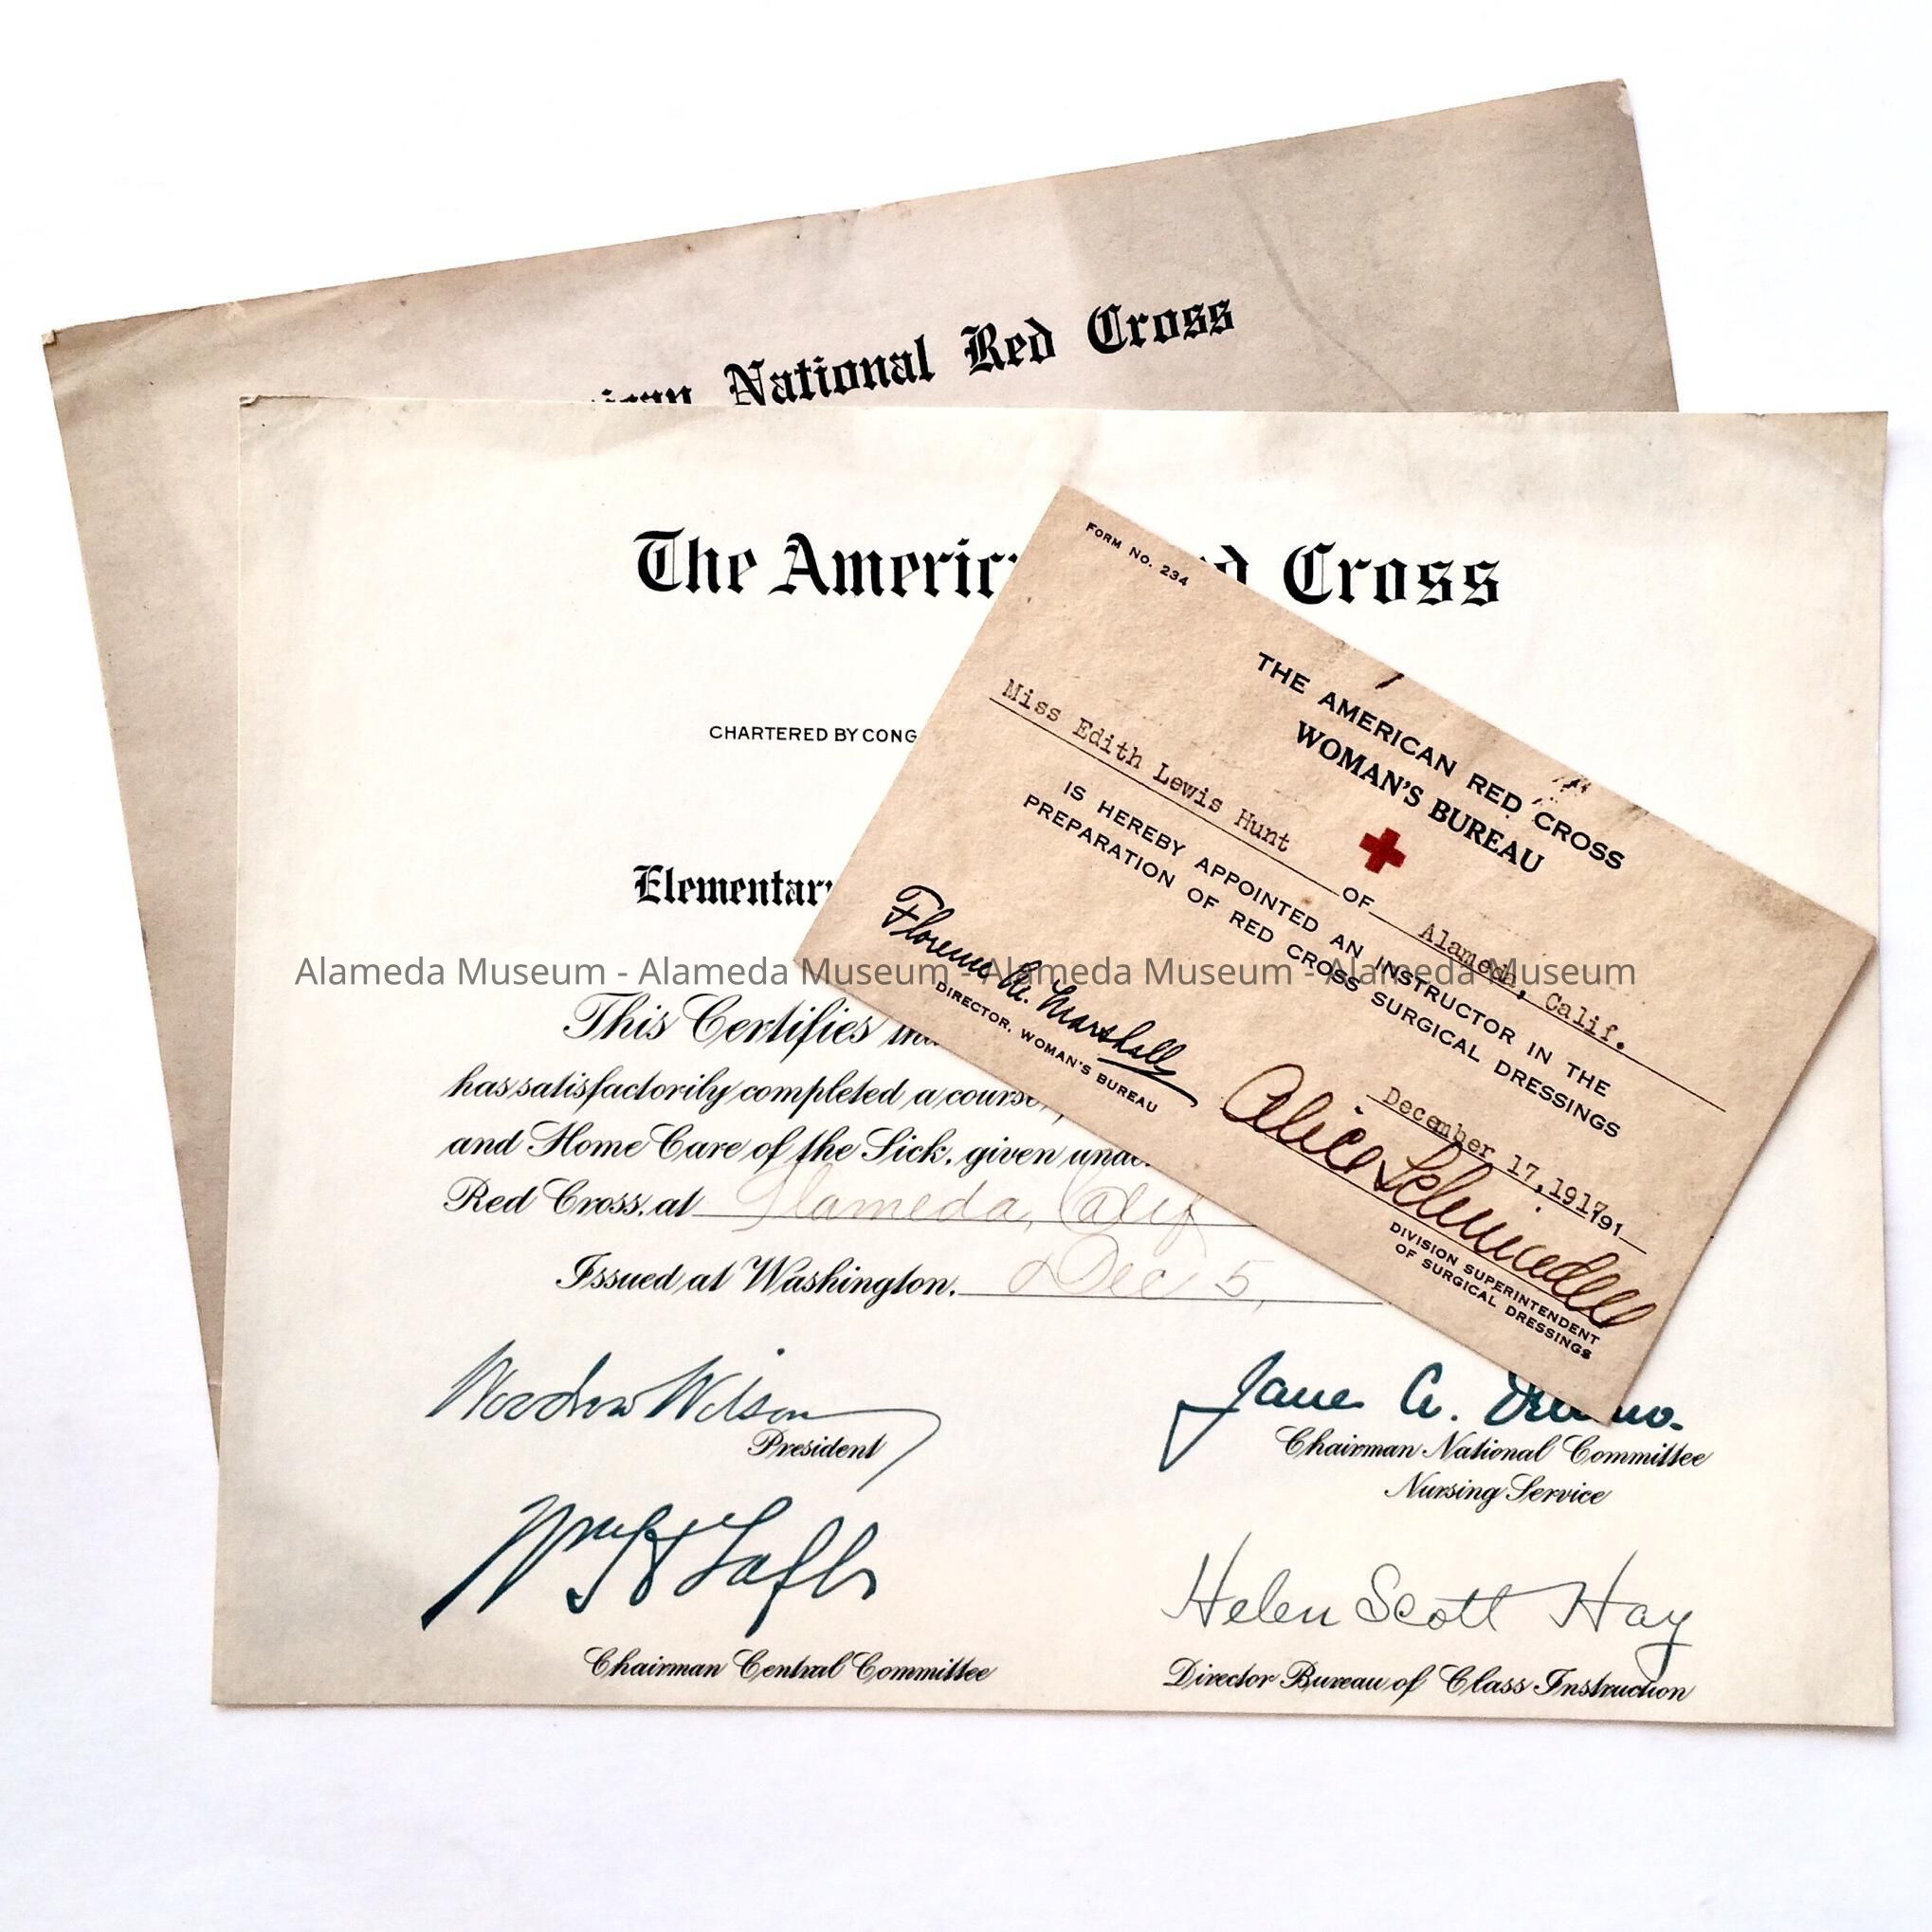 National Red Cross
The Americ
Cross
CHARTERED BY CONG
Elementary
This Certifies tha
has satisfactorily completed a course
and Home Care of the Sick, given unde
Red Cross, at Alameda, Calif
Issued at Washington, Dec 5,
Woodrow Wilson
President
Wm H Taft
Chairman Central Committee
Jane A. Delano.
Chairman National Committee
Nursing Service
Helen Scott Hay
Director Bureau of Class Instruction
FORM NO. 234
THE AMERICAN RED CROSS
WOMAN'S BUREAU
Miss Edith Lewis Hunt OF Alameda, Calif.
IS HEREBY APPOINTED AN INSTRUCTOR IN THE
PREPARATION OF RED CROSS SURGICAL DRESSINGS
December 17, 1917 191
Florence M. Marshall
DIRECTOR, WOMAN'S BUREAU
Alice Schmiedell
DIVISION SUPERINTENDENT
OF SURGICAL DRESSINGS
Alameda Museum - Alameda Museum - Alameda Museum - Alameda Museum